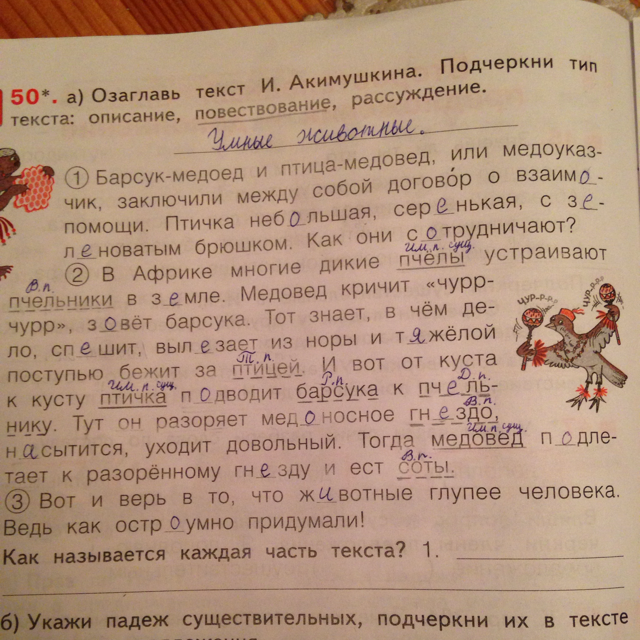 50*. а) Озаглавь текст И. Акимушкина. Подчеркни тип
текста: описание, повествование, рассуждение.
Умные животные.
① Барсук-медоед и птица-медовед, или медоуказ-
чик, заключили между собой договóр о взаимо-
помощи. Птичка небольшая, серенькая, с зе-
леноватым брюшком. Как они сотрудничают?
им.п. сущ.
② В Африке многие дикие пчёлы устраивают
В.п.
пчельники в земле. Медовед кричит «чурр-
чурр», зовёт барсука. Тот знает, в чём де-
ло, спешит, вылезает из норы и тяжёлой
Тп.
поступью бежит за птицей. И вот от куста
им.п. сущ. Р.п. Д.п.
к кусту птичка подводит барсука к пчель-
В.п.
нику. Тут он разоряет медоносное гнездо,
им.п. сущ.
насытится, уходит довольный. Тогда медовед подле-
В.п.
тает к разорённому гнезду и ест соты.
③ Вот и верь в то, что животные глупее человека.
Ведь как остроумно придумали!
Как называется каждая часть текста? 1.
б) Укажи падеж существительных, подчеркни их в тексте
ЧУР-Р-Р-Р
ЧУР-Р-Р-Р